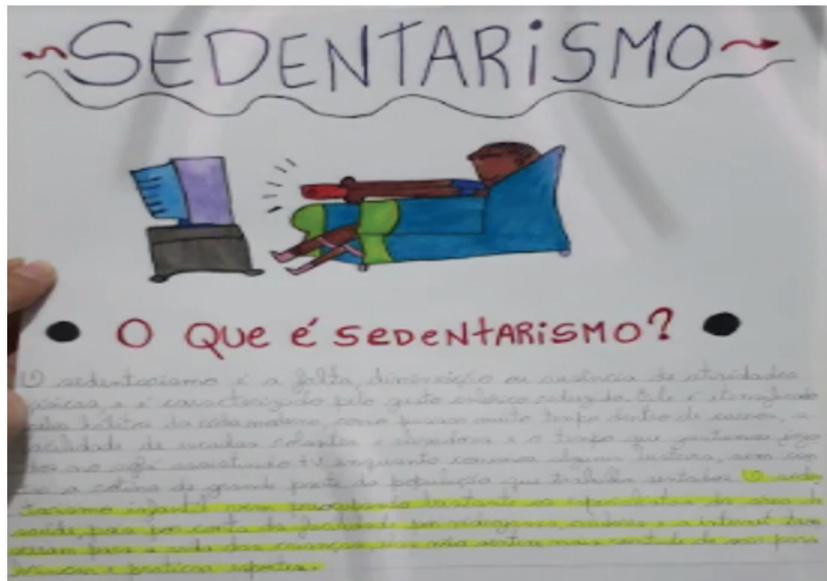 SEDENTARISMO
O QUE É SEDENTARISMO?
O sedentarismo é a falta, diminuição ou ausência de atividades
físicas, e é caracterizado pelo gasto calórico reduzido. Ele é
hábitos da vida moderna, como passar muito tempo dentro de carros, a
facilidade de escadas rolantes e elevadores e o tempo que
no sofá assistindo TV enquanto comemos alguma besteira,
a rotina de grande parte da população que trabalha sentados. O
infantil vem preocupando bastante os especialistas da área de
saúde, pois por conta da por videogames, celulares e a internet
para a vida das crianças, não vontade de para
e praticar esportes.